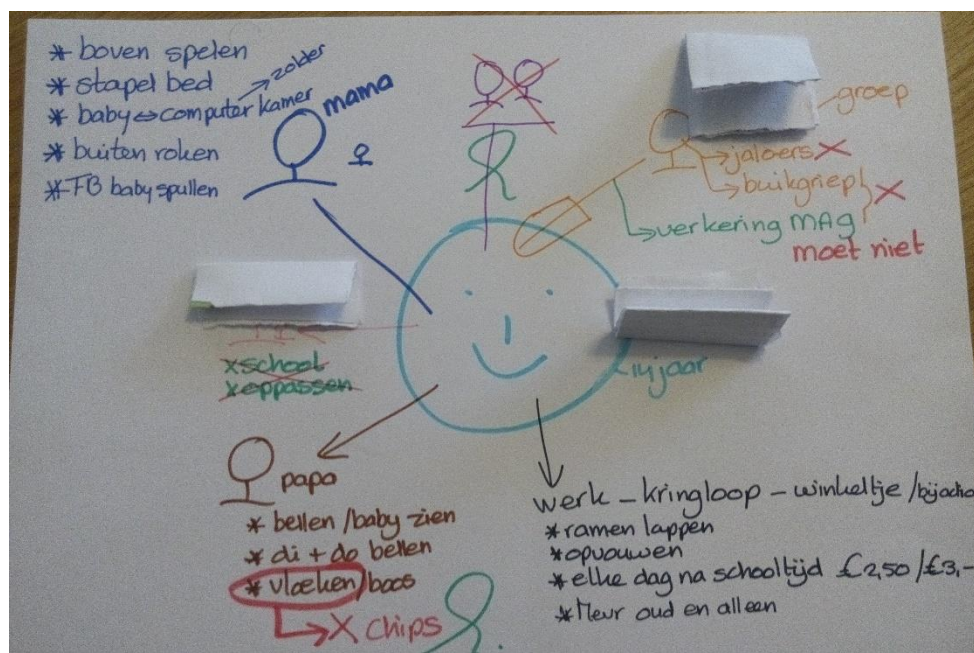 * boven spelen
* stapel bed
* baby ⇔ computer kamer → zolder
* buiten roken
* FB baby spullen
mama
groep
→ jaloers X
→ buikgriep } X
→ verkering MAG
moet niet
x school
x oppassen
14 jaar
papa
* bellen / baby zien
* di + do bellen
* vloeken / boos
→ X chips
werk – kringloop – winkeltje /
* ramen lappen
* opvouwen
* elke dag na schooltijd £2,50 / £3,-
* oud en alleen